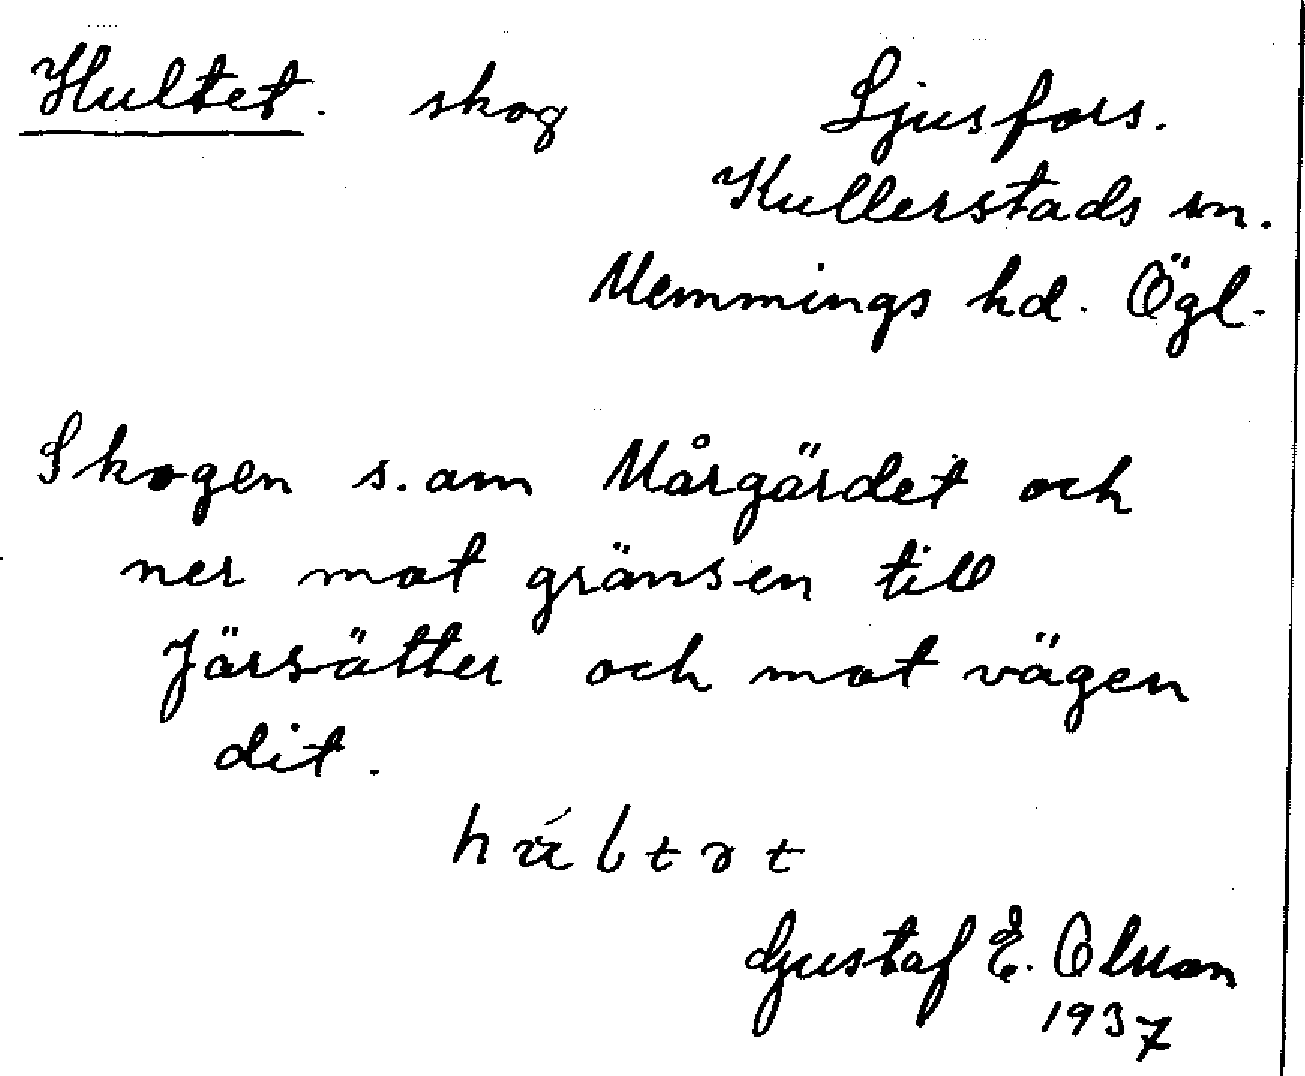 Hultet. skog
Ljusfors.
Kullerstads sn.
Memmings hd. Ögl.
Skogen s. om Mårgärdet och
ner mot gränsen till
Järsätter och mot vägen
dit.
Gustaf E. Olsson
1937